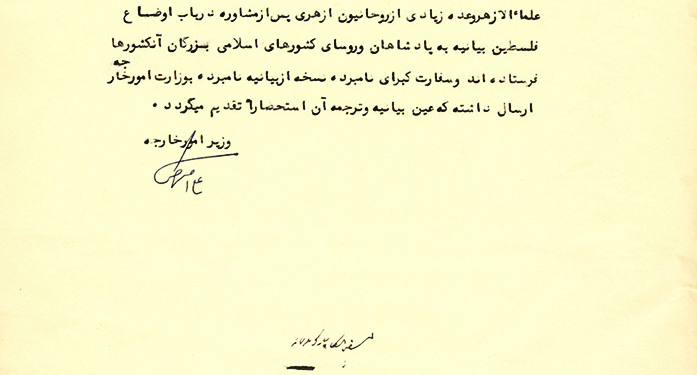 علماءالازهروعده زیادی ازروحانیون ازهری پس ازمشاوره درباب اوضاع
فلسطین بیانیه به پادشاهان وروسای کشورهای اسلامی بزرگان آنکشورها
فرستاده اند وسفارت کبرای نامبرده نسخه ازبیانیه نامبرده بوزارت امورخارجه
ارسال داشته که عین بیانیه وترجمه آن استحضارا تقدیم میگردد ۰
وزیر امورخارجه